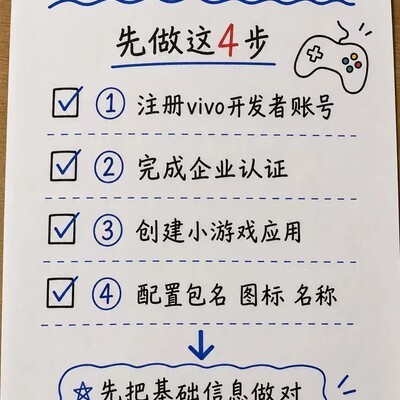 先做这4步
① 注册vivo开发者账号
② 完成企业认证
③ 创建小游戏应用
④ 配置包名 图标 名称
☆先把基础信息做对